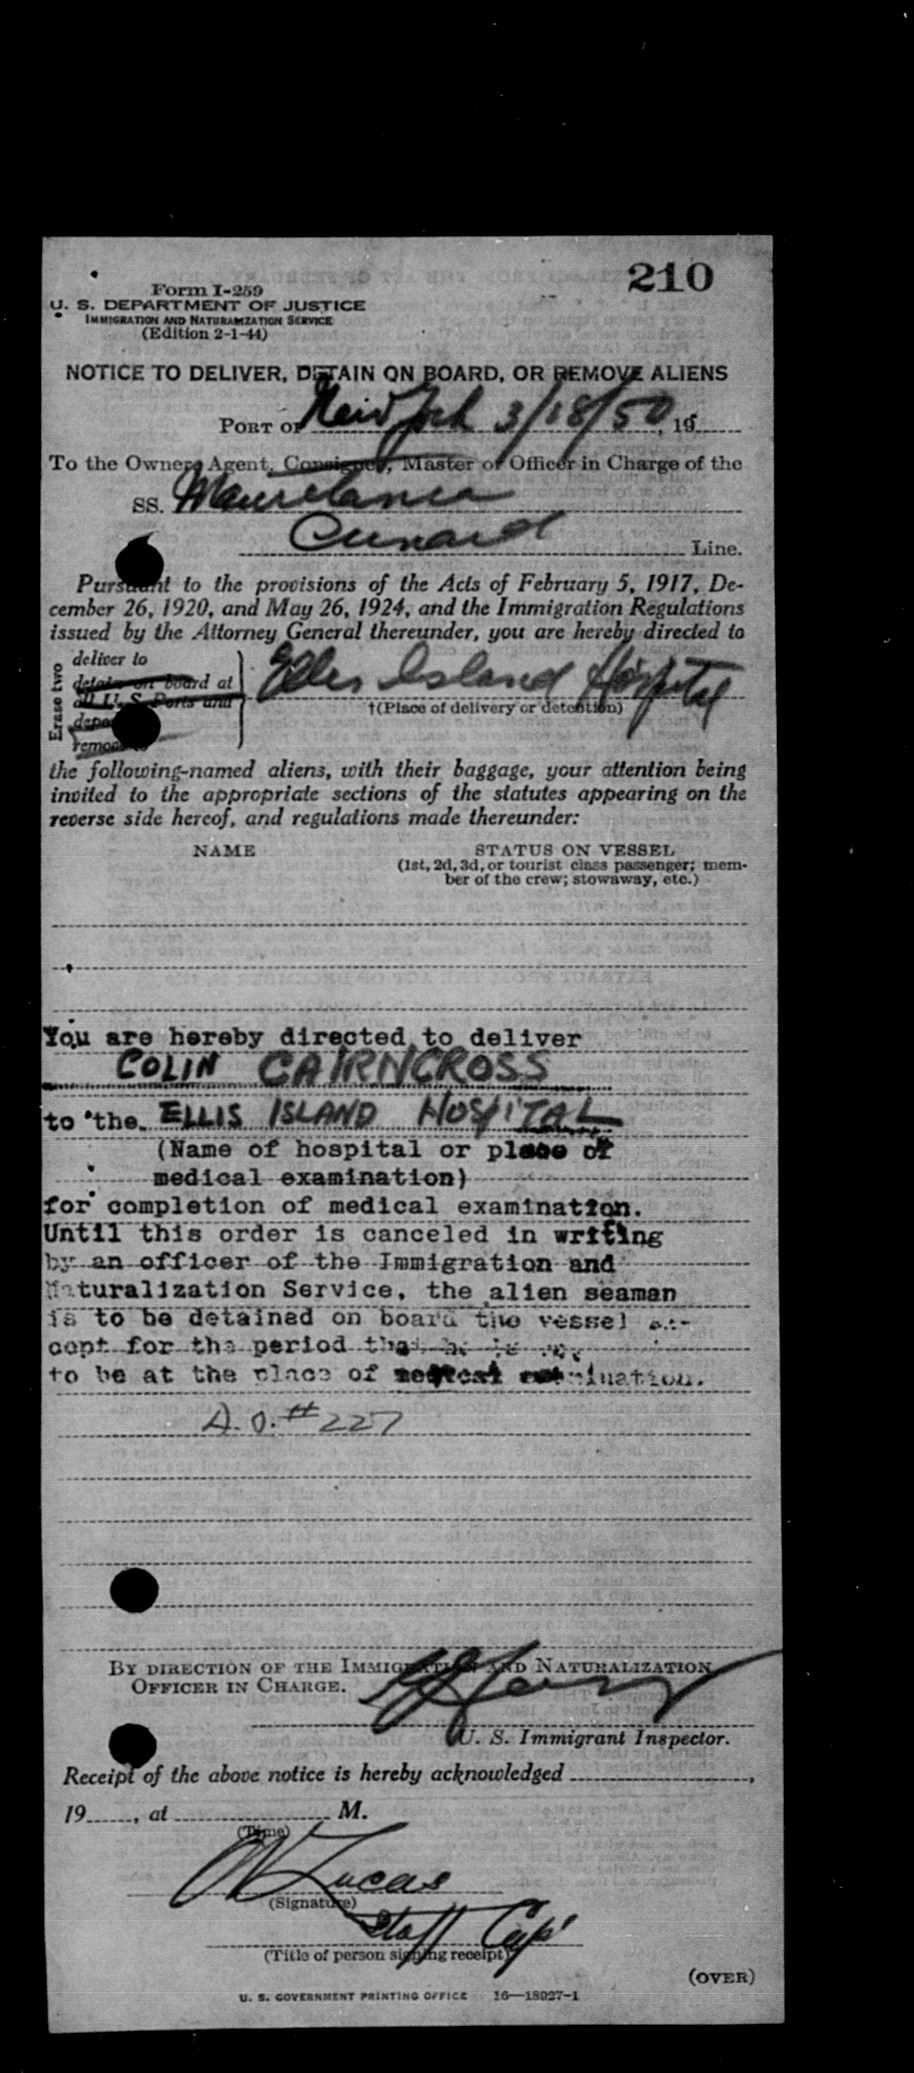 210
Form I-259
U. S. DEPARTMENT OF JUSTICE
IMMIGRATION AND NATURALIZATION SERVICE
(Edition 2-1-44)
NOTICE TO DELIVER, DETAIN ON BOARD, OR REMOVE ALIENS
PORT OF New York 3/18/50, 19
To the Owner, Agent, Consignee, Master or Officer in Charge of the
SS. Mauretania
Cunard Line.
Pursuant to the provisions of the Acts of February 5, 1917, De-
cember 26, 1920, and May 26, 1924, and the Immigration Regulations
issued by the Attorney General thereunder, you are hereby directed to
Erase two
deliver to
detain on board at
all U. S. Ports and
remove to
Ellis Island Hospital
†(Place of delivery or detention)
the following-named aliens, with their baggage, your attention being
invited to the appropriate sections of the statutes appearing on the
reverse side hereof, and regulations made thereunder:
NAME STATUS ON VESSEL
(1st, 2d, 3d, or tourist class passenger; mem-
ber of the crew; stowaway, etc.)
You are hereby directed to deliver
COLIN CAIRNCROSS
to the ELLIS ISLAND HOSPITAL
(Name of hospital or place of
medical examination)
for completion of medical examination.
Until this order is canceled in writing
by an officer of the Immigration and
Naturalization Service, the alien seaman
is to be detained on board the vessel ex-
cept for the period that he is
to be at the place of medical examination.
D.O. #227
BY DIRECTION OF THE IMMIGRATION AND NATURALIZATION
OFFICER IN CHARGE.
U. S. Immigrant Inspector.
Receipt of the above notice is hereby acknowledged ,
19 , at M.
(Time)
Lucas
(Signature)
Staff Capt
(Title of person signing receipt)
(OVER)
U. S. GOVERNMENT PRINTING OFFICE 16—18027-1